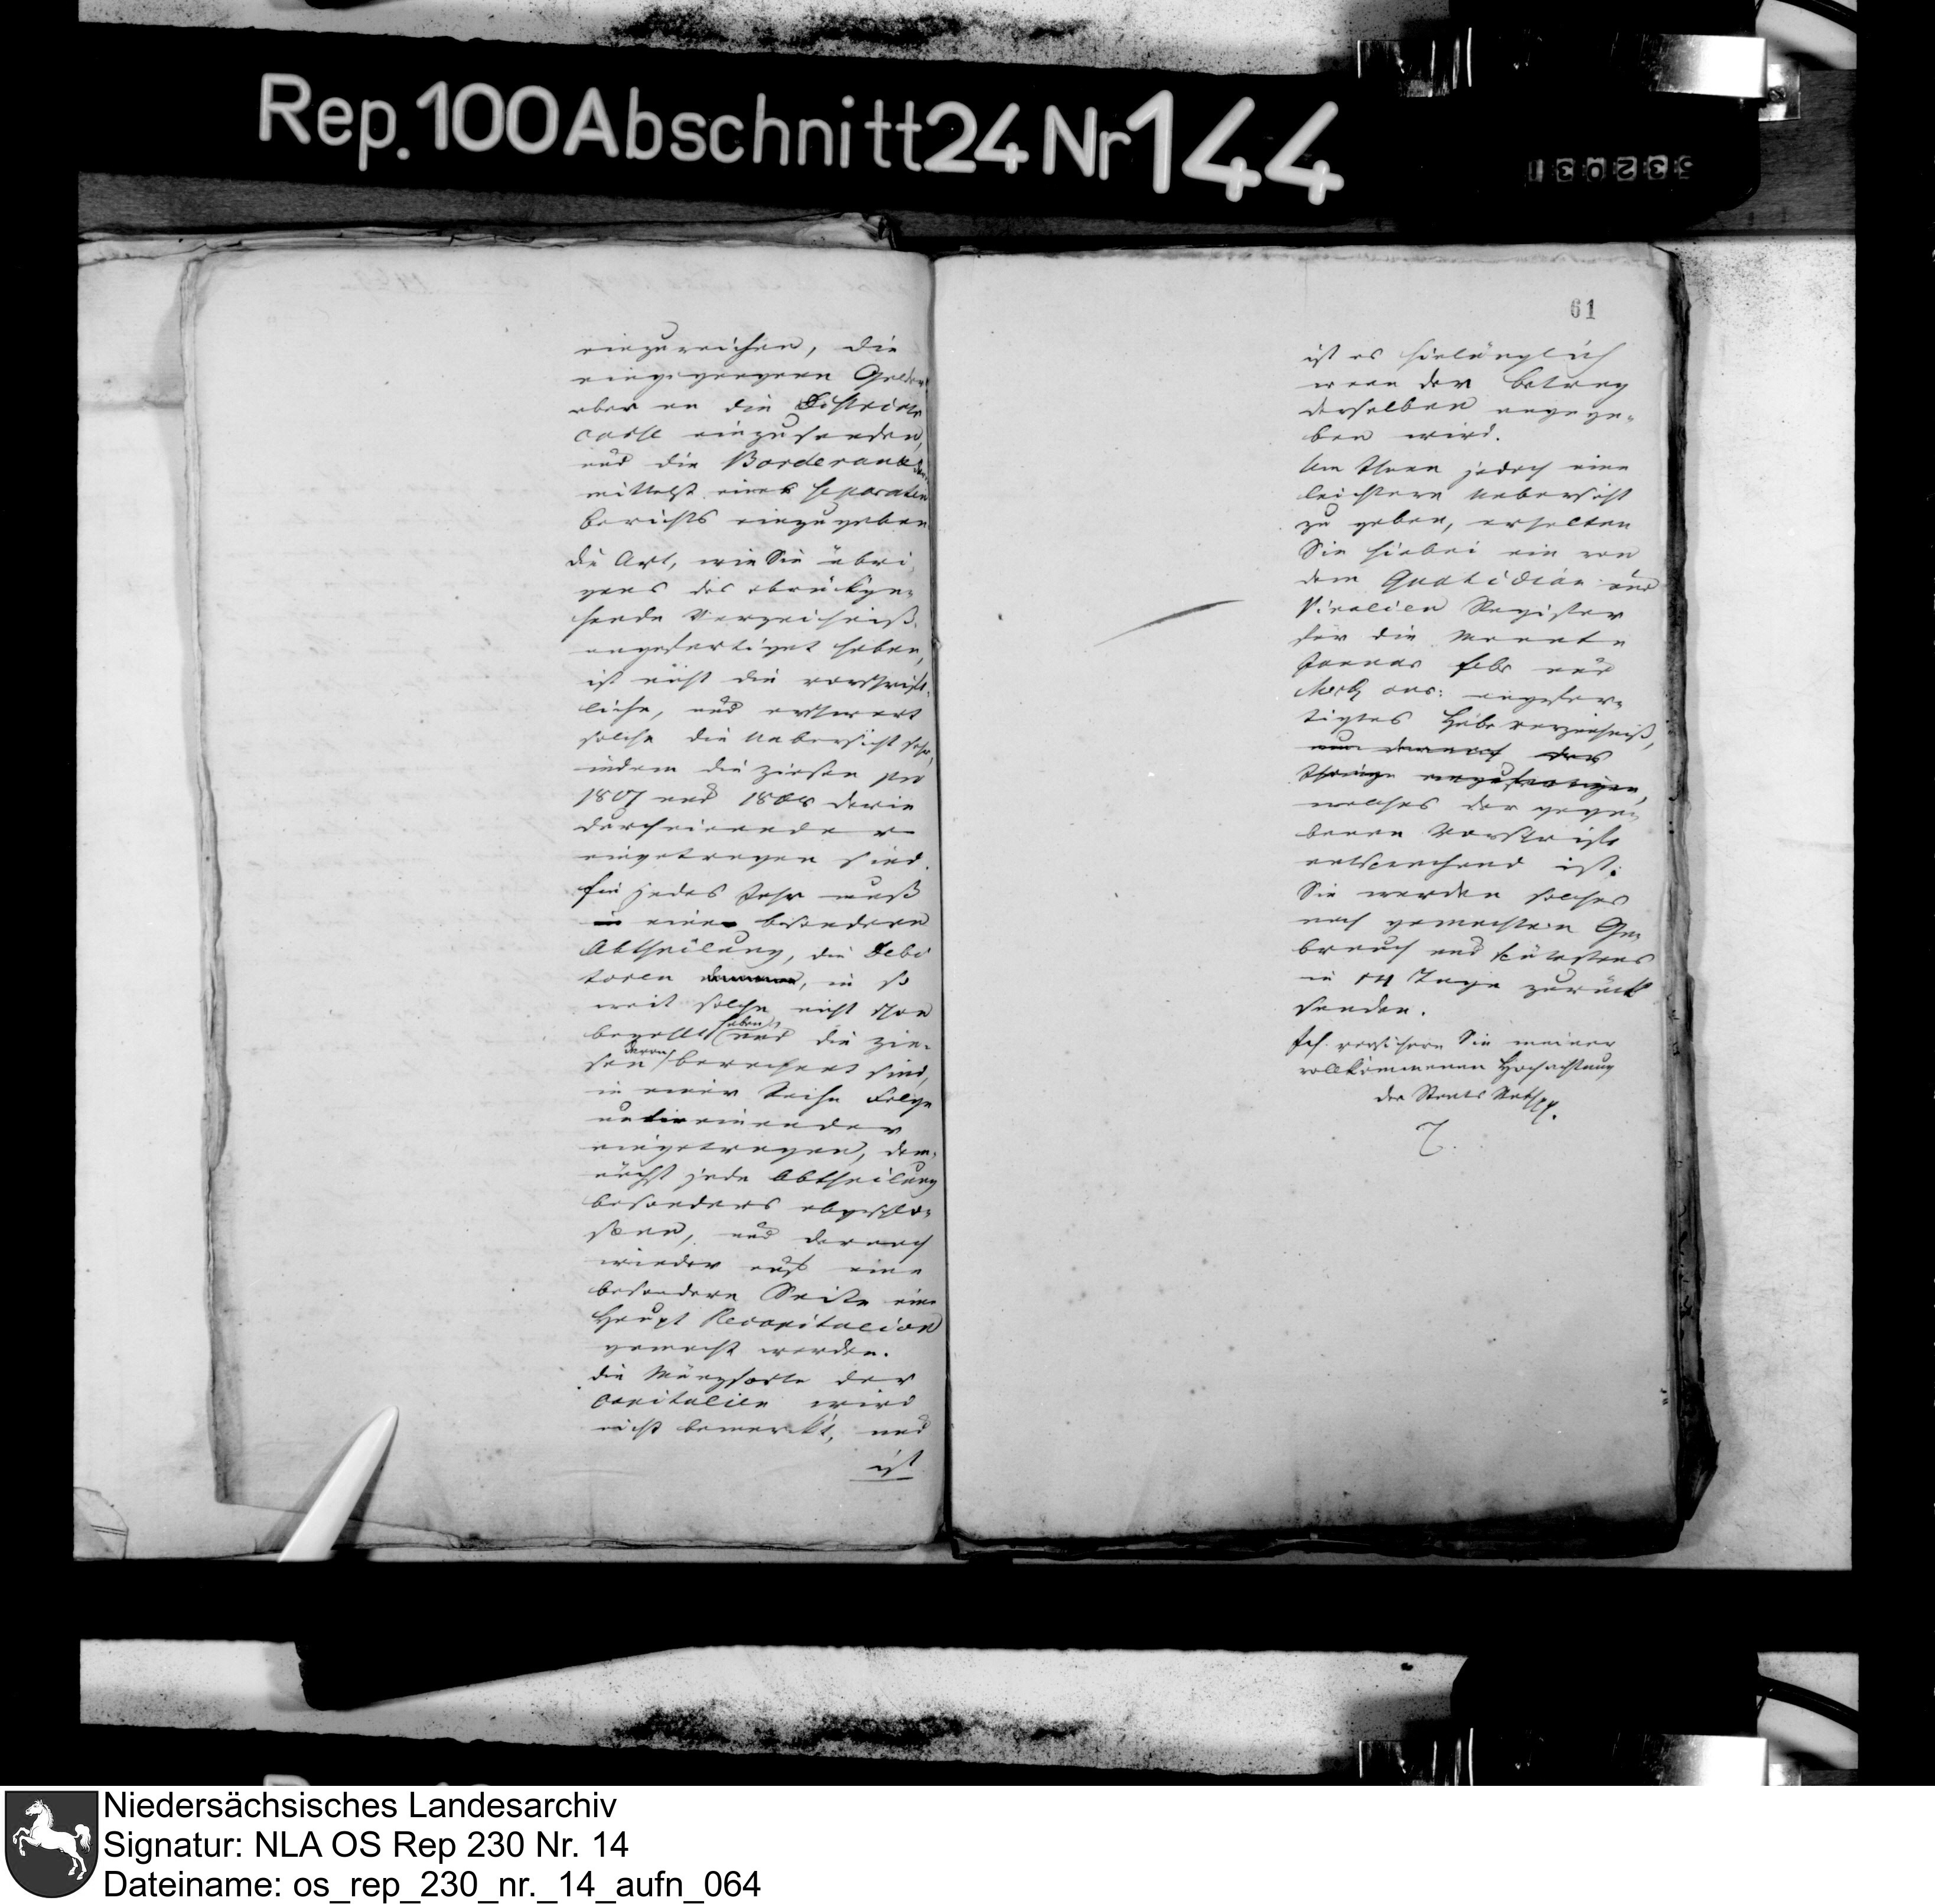 Rep. 100 Abschnitt 24 Nr 144
einzureichen, die
eingegangenen Gelder
aber an die Districts
casse einzusenden,
und die Borderaux
mittelst eines separaten
berichts einzugeben
die Art, wie Sie übri¬
gens das
Verzeichniß
angefertiget haben,
ist nicht die vorschrift¬
liche, und erschwert
solche die Uebersicht sehr,
indem die Zinsen pro
1807 und 1808 darin
durcheinander
eingetragen sind.
Für jedes Jahr muß
in einer besondern
Abtheilung, die Debi
toren, in so
weit solche nicht schon
bezahlt haben, und die Zin¬
sen davon berechnet sind,
in einer Reihe Folge
untereinander
eingetragen, dem¬
nächst jede Abtheilung
besonders abgeschlo¬
ssen, und darnach
wieder auf eine
besondere Seite eine
Haupt Recapitulation
gemacht werden.
die Münzsorte der
Capitalien wird
nicht bemerkt, und
ist
61
ist es hinlänglich
wenn der Betrag
derselben angege¬
ben wird.
Um Ihnen jedoch eine
leichtere Uebersicht
zu geben, erhalten
Sie hiebei ein von
dem Quotidian und
Vicalien Register
für die Monate
Januar Febr und
Merz anc: angefer¬
tigtes Hebeverzeichniß,
um darnach das
Ihrige anzufertigen,
welches der gege¬
benen Vorschrift
entsprechend ist.
Sie werden solches
nach gemachtem Ge¬
brauch und spätestens
in 14 Tage zurück
senden.
Ich versichere Sie meiner
vollkommenen Hochachtung
der Staats Rath
Niedersächsisches Landesarchiv
Signatur: NLA OS Rep 230 Nr. 14
Dateiname: os_rep_230_nr._14_aufn_064